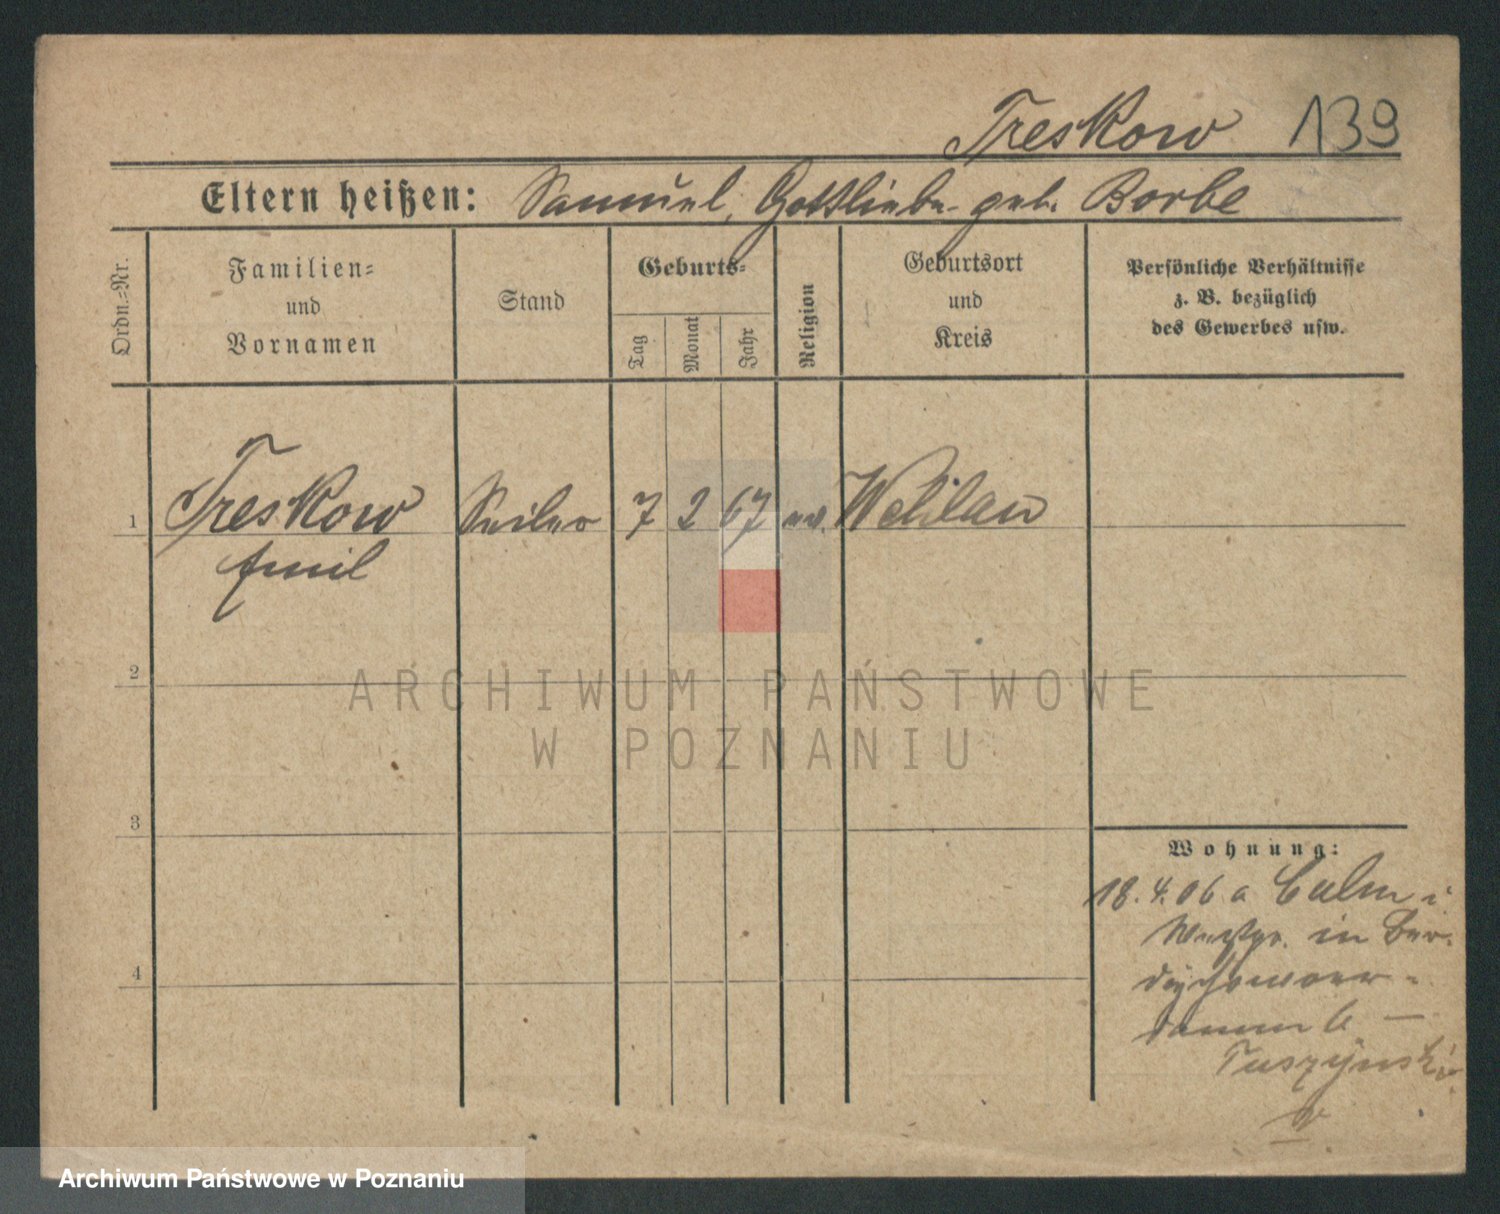 Treskow 139
Eltern heißen: Samuel, Gottliebe geb. Borbe
Ordn.-Nr.
Familien-
und
Vornamen
Stand
Geburts-
Tag
Monat
Jahr
Religion
Geburtsort
und
Kreis
Persönliche Verhältnisse
z. B. bezüglich
des Gewerbes usw.
1 Treskow Seiler 7 2 67 ev. Wehlau
Emil
2
ARCHIWUM PAŃSTWOWE
W POZNANIU
3
Wohnung:
18.4.06 a Culm i
Westpr. in Ber-
4
damm 6 —
Tuszynski
Archiwum Państwowe w Poznaniu